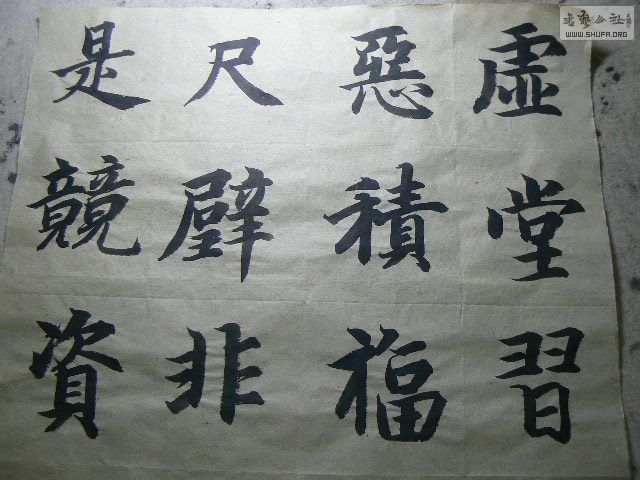 虛堂習
惡積福
尺璧非
是競資
書藝公社
WWW.SHUFA.ORG